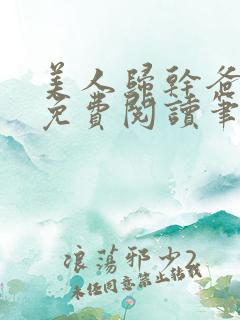 美人歸幹爸
免費閱讀筆
浪蕩邪少2
未經同意禁止轉載